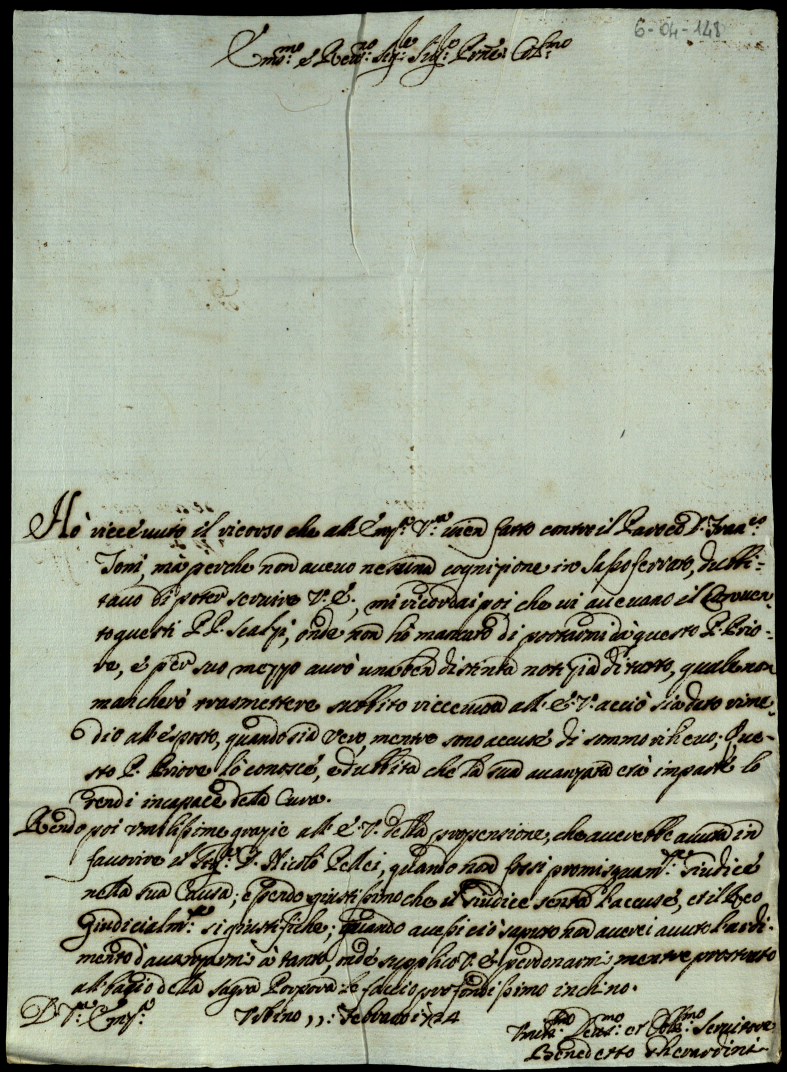 6-04-148
Em̃o: e Reu:mo Sig:re Sig:re Prõne Col:mo
Hò riceuuto il ricorso che all' Em.a V.ra uien fatto contro il Paroco D. Fran.co
Toni, mà perche non aueuo nessuna cognizione in Sassoferrato, dubbi-
tauo di poter seruire V. E., mi ricordai poi che ui aueuano il Conuen-
to questi P.P. Scalzi, onde non hò mancato di portarmi dà questo P. Prio-
re, e per suo mezzo aurò una ben distinta notizia di tutto, quale non
mancherò trasmettere subbito riceuuta all' E. V. acciò sia dato rime-
dio all' esposto, quando sia vero, mentre sono accuse di sommo rilieuo; Que-
sto P. Priore lo conosce, e dubbita che la sua auanzata età in parte lo
rendi incapace della Cura.
Rendo poi umilissime grazie all' E. V. della propensione, che auerebbe auuta in
fauorire il Sig.r D. Nicolò Pellei, quando non fossi promiscuam.te Giudice
nella sua Causa; e perdo giustissimo che il Giudice senta l'accuse, et il Reo
Giudicialm.te si giustifiche; quando auessi ciò saputo non auerei auuto l'ardi-
mento d'auanzarmi à tanto, onde supplico V. E. perdonarmi mentre prostrato
al bagio della Sagra Porpora le faccio profondissimo inchino.
D. V.ra Em.a Vrbino ,,: Febbraio 1724
Vmil:mo Deuot:mo et Obblig:mo Seruitore
Benedetto Gherardini